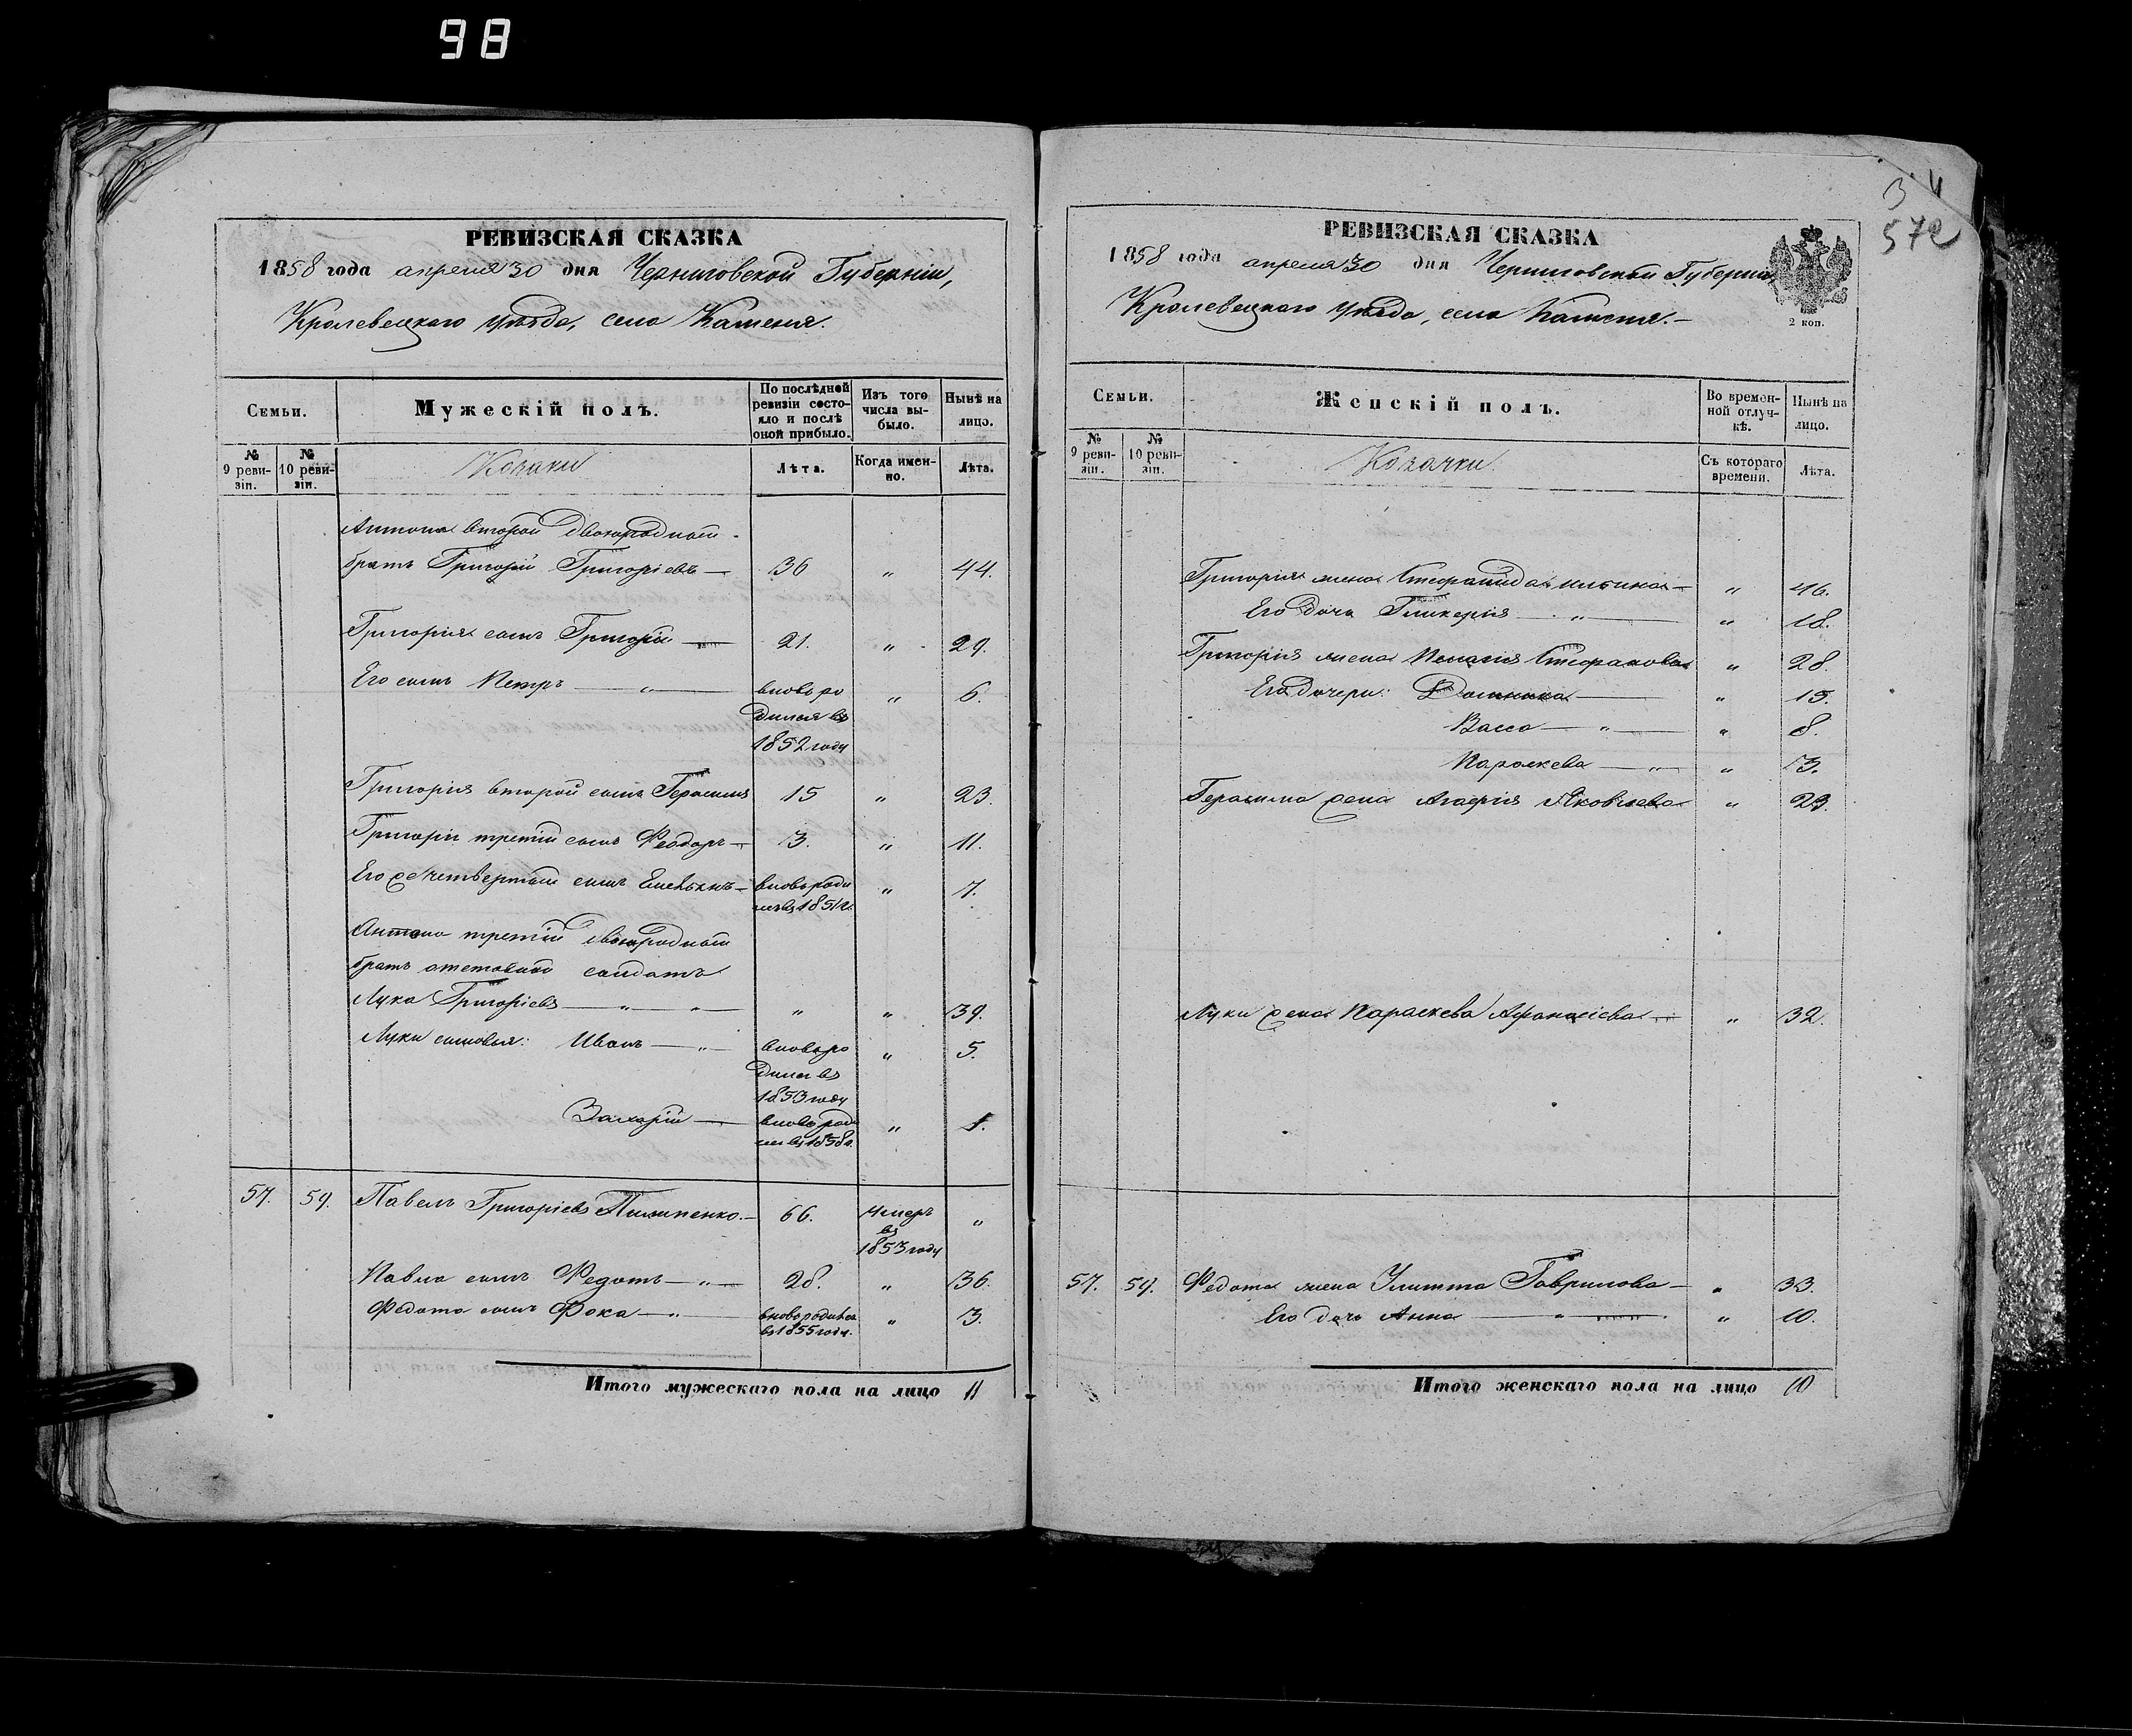 98
572
РЕВИЗСКАЯ СКАЗКА
1858 года апреля 30 дня Черниговской Губерніи,
Кролевецкаго уѣзда, села Каменя.
Семьи.
Мужескій полъ.
По послѣдней ревизіи состояло и послѣ оной прибыло.
Изъ того числа выбыло.
Нынѣ на лицо.
№ 9 ревизіи.
№ 10 ревизіи.
Козаки
Лѣта.
Когда именно.
Лѣта.
Антона второй двоюродный
братъ Григорій Григоріевъ — 36 „ 44.
Григорія сынъ Григорій — 21. „ 29.
Его сынъ Петръ — „ — вновь ро „ 6.
дился въ
1852 году
Григорія второй сынъ Герасимъ 15 „ 23.
Григорія третій сынъ Феодоръ — 3. „ 11.
Его же четвертый сынъ — вновь роди „ 7.
Антона третій двоюродный
братъ отставной солдатъ
Лука Григоріевъ — „ — „ — „ „ 39.
Луки сыновья: Иванъ — „ — вновь ро „ 5.
дился въ
1853 году
Захарій — вновь роди „ 1.
лся въ 1858 г.
57. 59. Павелъ Григоріевъ Пилипенко. — 66. умеръ „
въ
1853 году
Павла сынъ Федотъ — „ — 28. „ 36.
Федота сынъ Фока — „ — вновь родился „ 3.
въ 1855 году.
Итого мужескаго пола на лицо 11
РЕВИЗСКАЯ СКАЗКА
1858 года апреля 30 дня Черниговской Губерніи,
Кролевецкаго уѣзда, села Каменя. —
2 коп.
Семьи.
Женскій полъ.
Во временной отлучкѣ.
Нынѣ на лицо.
№ 9 ревизіи.
№ 10 ревизіи.
Козачки.
Съ котораго времени.
Лѣта.
Григорія жена Стефанида Ильина — „ 46.
Его дочь Гликерія — „ — „ 18.
Григорія жена Пелагія Стефанова „ 28.
Его дочери: Домника — „ 15.
Васса — „ — „ 8.
Параскева — „ — „ 3.
Герасима жена Агафія Яковлева „ 23.
Луки жена Параскева Афанасіева — „ 32.
57. 59. Федота жена Улитта Гаврилова — „ 33.
Его дочь Анна — „ — „ 10.
Итого женскаго пола на лицо 10